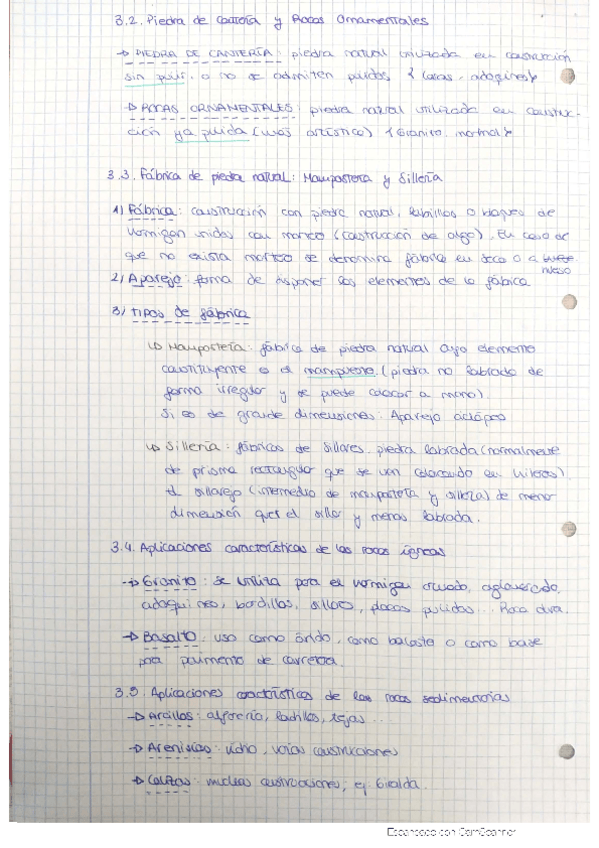 3.2. Piedra de Cantería y Rocas Ornamentales
→ PIEDRA DE CANTERÍA: piedra natural utilizada en construcción
sin pulir, o no se admiten pulidos {losas, adoquines}
→ ROCAS ORNAMENTALES: piedra natural utilizada en construc-
ción ya pulida (más artístico) {Granito, mármol}
3.3. Fábrica de piedra natural: Mampostería y Sillería
1) Fábrica: construcción con piedra natural, ladrillos o bloques de
hormigón unidos con mortero (construcción de algo). En caso de
que no exista mortero se denomina fábrica en seco o a hueso
2) Aparejo: forma de disponer los elementos de la fábrica
3) Tipos de fábrica
↳ Mampostería: fábrica de piedra natural cuyo elemento
constituyente es el mampuesto. (piedra no labrada de
forma irregular y se puede colocar a mano).
Si es de grande dimensiones: Aparejo ciclópeo
↳ Sillería: fábricas de sillares, piedra labrada (normalmente
de prisma rectangular que se van colocando en hileras).
El sillarejo (intermedio de mampostería y sillería) de menor
dimensión que el sillar y menos labrada.
3.4. Aplicaciones características de las rocas ígneas
→ Granito: se utiliza para el hormigón armado, aglomerado,
adoquines, bordillos, sillares, placas pulidas... Roca dura.
→ Basalto: uso como árido, como balasto o como base
para pavimento de carretera.
3.5. Aplicaciones características de las rocas sedimentarias
→ Arcillas: alfarería, ladrillos, tejas...
→ Areniscas: nicho, varias construcciones
→ Calizas: muchas construcciones, ej. Giralda.
Escaneado con CamScanner